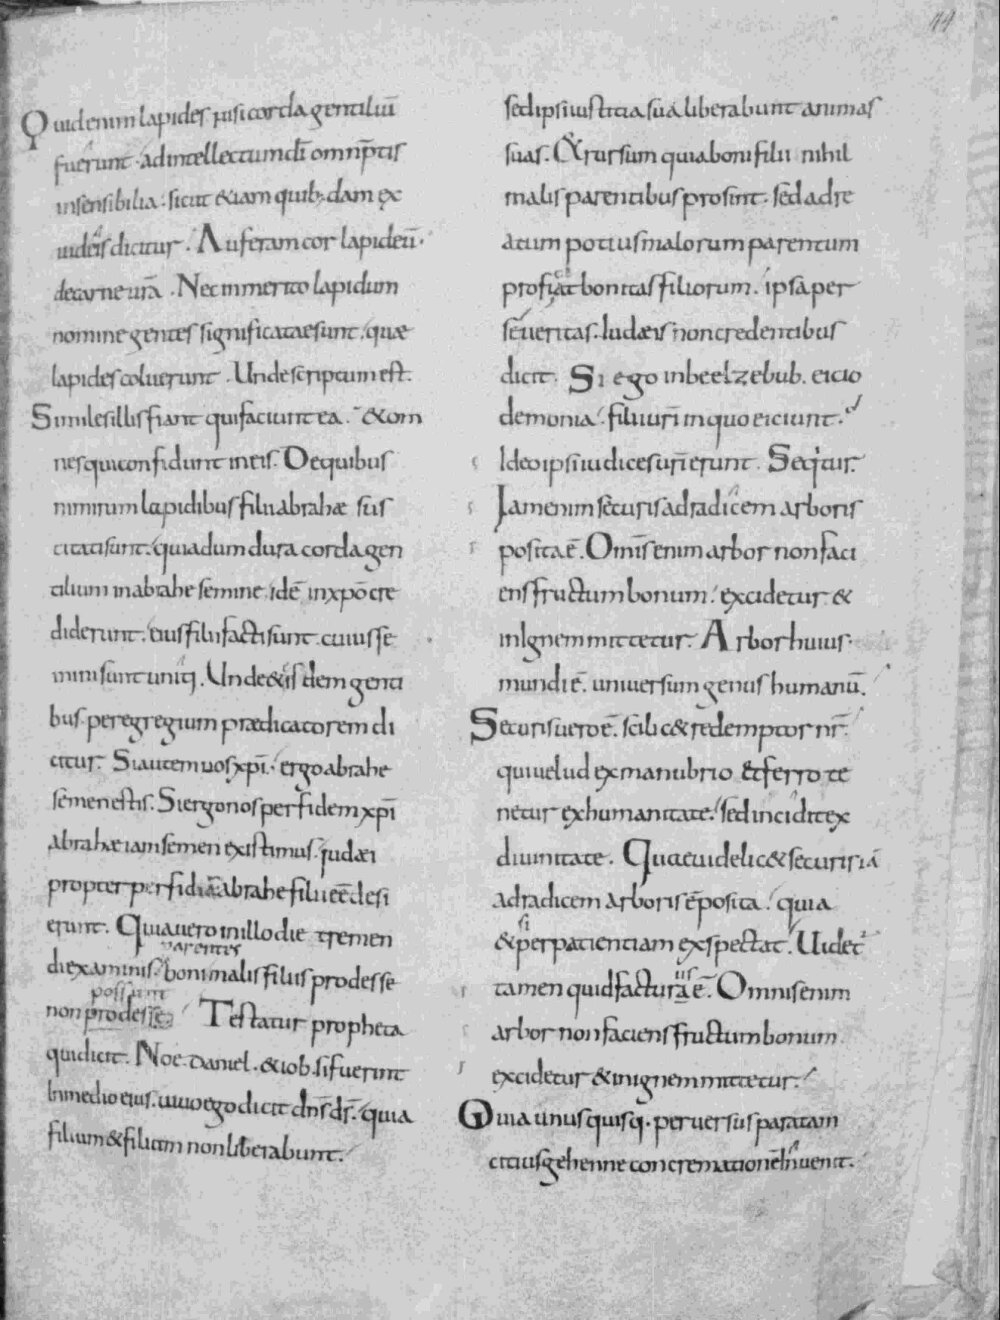 44
Quid enim lapides nisi corda gentiliū
fuerunt · ad intellectum dī omnip̄tis
insensibilia · sicut &iam quib; dam ex
iudeis dicitur . Auferam cor lapideū ·
de carne ur̄a . Nec inmerito lapidum
nomine gentes significatae sunt , quae
lapides coluerunt . Unde scriptum est .
Similes illis fiant qui faciunt ea . & om
nes qui confidunt in eis . De quibus
nimirum lapidibus filii abrahæ sus
citati sunt . quia dum dura corda gen
tilium in abrahe semine idē in xp̄o cre
diderunt . eius filii facti sunt . cuius se
mini sunt uniti . Unde & eis dem genti
bus . per egregium prædicatorem di
citur . Si autem uos xp̄i . ergo abrahe
semen estis . Si ergo nos per fidem xp̄i
abrahæ iam semen existimus . iudæi
propter perfidiā abrahe filii eē desi
erunt . Quia uero in illo die tremen
di examinis . boni malis filiis prodesse
parentes
non prodesse
possunt
Testatur propheta
qui dicit . Noe . Daniel . & iob . si fuerint
in medio eius . uiuo ego dicit dn̄s d̄s . quia
filium & filiam non liberabunt .
sed ipsi iustitia sua liberabunt animas
suas . & rursum quia boni filii nihil
malis parentibus prosint . sed ad re
atum potius malorum parentum
bonitas filiorum . ipsa per
se ueritas . Iudæis non credentibus
dicit . Si ego in beelzebub . eicio
demonia . filii ur̄i in quo eiciunt .
Ideo ipsi iudices ur̄i erunt . Seqitur .
Iam enim securis ad radicem arboris
posita ē . Omīs enim arbor non faci
ens fructum bonum . excidetur &
in Ignem mittetur . Arbor huius
mundi ē . uniuersum genus humanū .
Securis uero ē . scilic& redemptor nr̄ .
qui uelud ex manubrio & ferro te
netur ex humanitate . sed incidit ex
diuinitate . Quae uidelic& securis iā
ad radicem arboris ē posita . quia
& si per patientiam exspectat . Uidet
tamen quid facturus ē . Omnis enim
arbor non faciens fructum bonum
excidetur & in ignem mittetur .
Quia unusquisq. peruersus paratam
citius gehenne concremationē Inuenit .